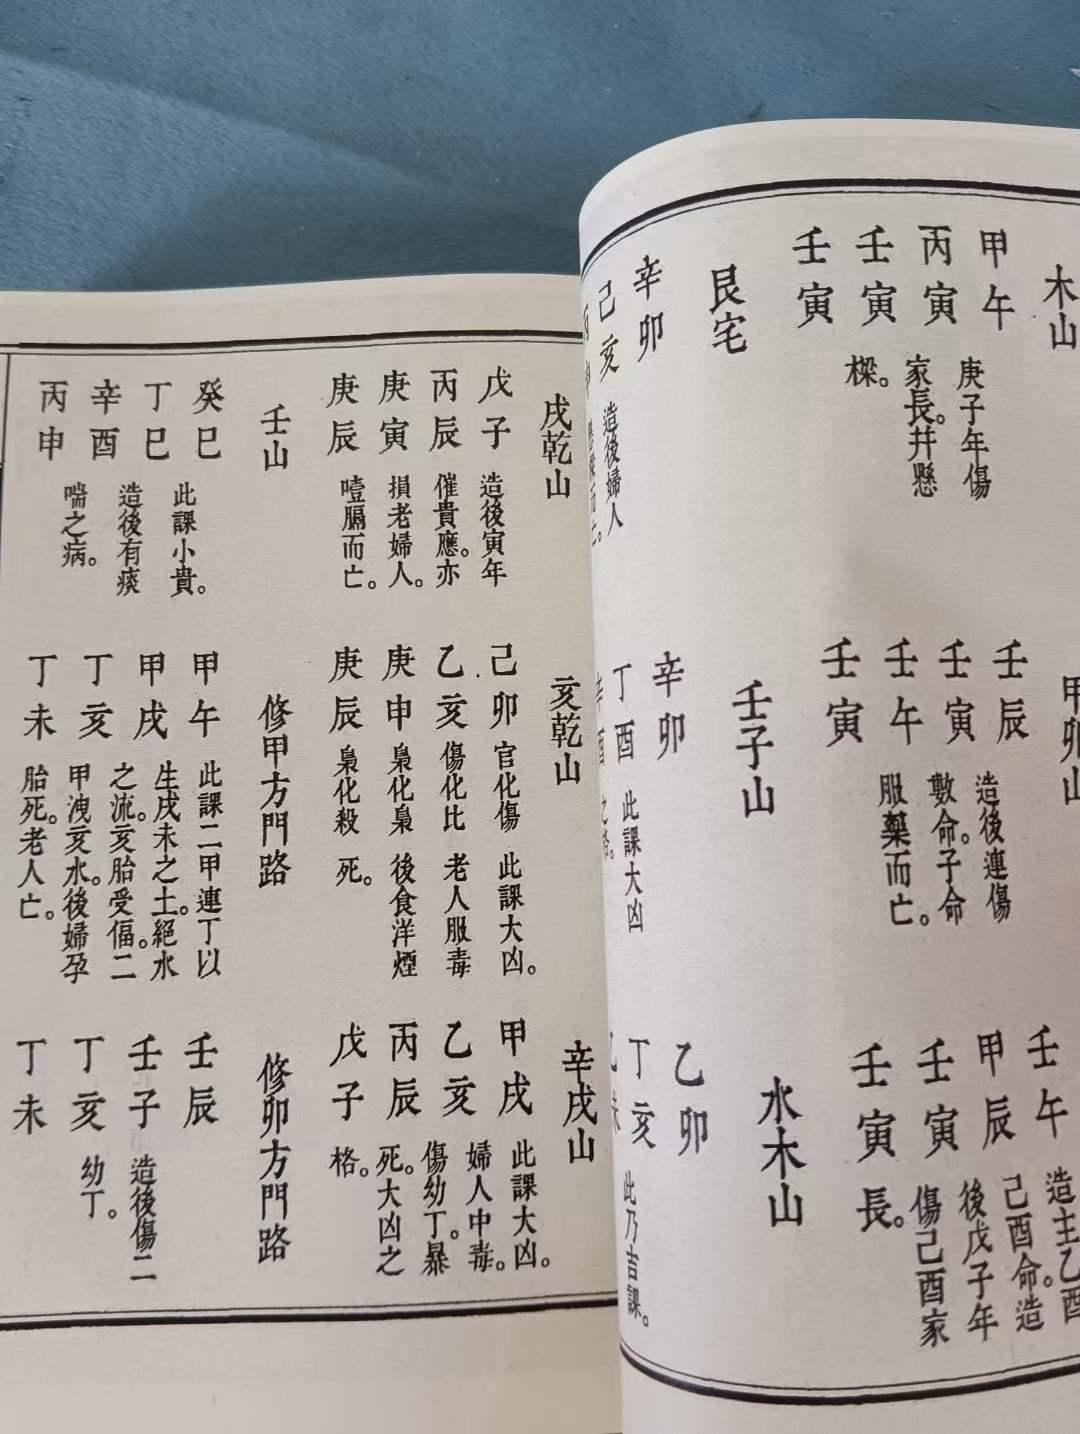 木山
甲午
丙寅
壬寅
壬寅
庚子年傷
家長。幷懸
樑。
艮宅
辛卯
己亥
造後婦人
甲卯山
壬辰
壬寅
壬午
壬寅
造後連傷
數命。子命
服藥而亡。
壬子山
辛卯
丁酉
此課大凶
壬午
甲辰
壬寅
壬寅
造主乙酉
己酉命。造
後戊子年
傷己酉家
長。
水木山
乙卯
丁亥
此乃吉課。
戌乾山
戊子
丙辰
庚寅
庚辰
造後寅年
催貴應。亦
損老婦人。
噎膈而亡。
壬山
癸巳
丁巳
辛酉
丙申
此課小貴。
造後有痰
喘之病。
亥乾山
己卯 官化傷 此課大凶。
乙亥 傷化比 老人服毒
庚申 梟化梟 後食洋煙
庚辰 梟化殺 死。
修甲方門路
甲午
甲戌
丁亥
丁未
此課二甲連丁以
生戌未之土。絕水
之流。亥胎受偪。二
甲洩亥水。後婦孕
胎死。老人亡。
辛戌山
甲戌
乙亥
丙辰
戊子
此課大凶。
婦人中毒。
傷幼丁。暴
死。大凶之
格。
修卯方門路
壬辰
壬子
丁亥
丁未
造後傷二
幼丁。